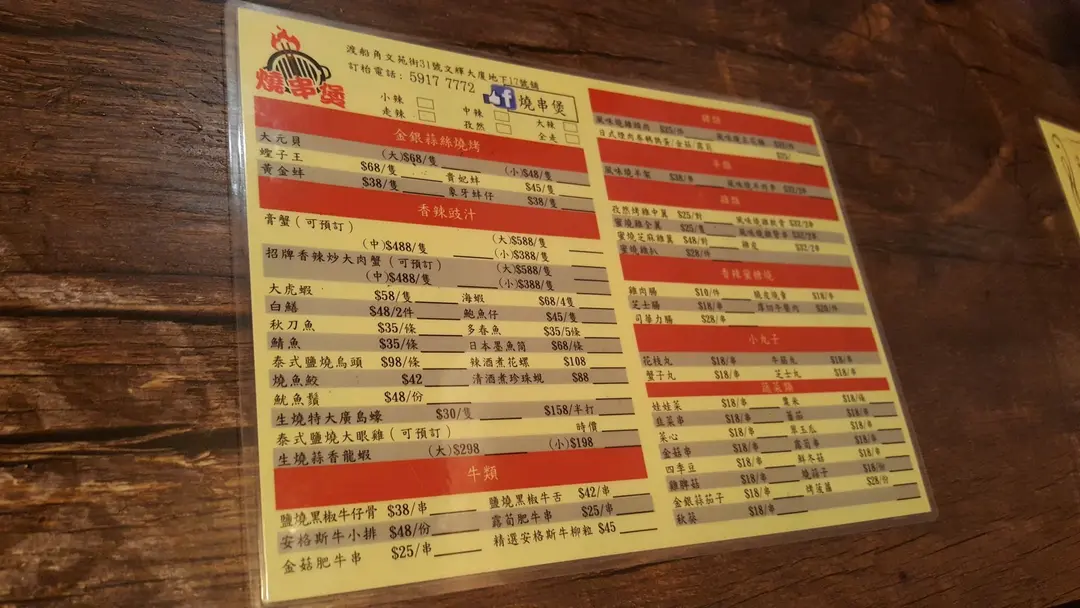 燒串煲
渡船角文苑街31號文輝大廈地下17號舖
訂枱電話：5917 7772
f 燒串煲
小辣 中辣 大辣
走辣 孜然 全走
金銀蒜絲燒烤
大元貝 (大)$68/隻 (小)$48/隻
蟶子王 $68/隻 貴妃蚌 $45/隻
黃金蚌 $38/隻 象牙蚌仔 $38/隻
香辣豉汁
膏蟹(可預訂) (大)$588/隻
(中)$488/隻 (小)$388/隻
招牌香辣炒大肉蟹(可預訂) (大)$588/隻
(中)$488/隻 (小)$388/隻
大虎蝦 $58/隻 海蝦 $68/4隻
白鱔 $48/2件 鮑魚仔 $45/隻
秋刀魚 $35/條 多春魚 $35/5條
鯖魚 $35/條 日本墨魚筒 $68/條
泰式鹽燒烏頭 $98/條 辣酒煮花螺 $108
燒魚鮫 $42 清酒煮珍珠蜆 $88
魷魚鬚 $48/份
生燒特大廣島蠔 $30/隻 $158/半打
泰式鹽燒大眼雞(可預訂) 時價
生燒蒜香龍蝦 (大)$298 (小)$198
牛類
鹽燒黑椒牛仔骨 $38/串 鹽燒黑椒牛舌 $42/串
安格斯牛小排 $48/份 露荀肥牛串 $25/串
金菇肥牛串 $25/串 精選安格斯牛柳粒 $45
豬類
風味燒豬頸肉 $25/件
日式煙肉卷鵪鶉蛋/金菇/露荀
羊類
風味燒羊架 $38/串
雞類
孜然烤雞中翼 $25/對
蜜燒雞全翼 $25/隻
蜜燒芝麻雞翼 $48/對 雞皮
蜜燒雞扒 $28/件
香辣蜜糖燒
雞肉腸 $10/件 $18/串
芝士腸 $18/串 厚切午餐肉
司華力腸 $28/串
小丸子
花枝丸 $18/串 牛蒜丸 $18/串
蟹子丸 $18/串 芝士丸 $18/串
蔬菜類
娃娃菜 $18/串 粟米 $18/
韮菜串 $18/串 蕃茄 $18/串
菜心 $18/串 翠玉瓜 $18/串
金菇串 $18/串 露荀串 $18/串
四季豆 $18/串 鮮冬菇 $18/串
雞脾菇 $18/串 燒茄子 $18/份
金銀蒜茄子 $18/串 烤菠蘿 $28/份
秋葵 $18/串